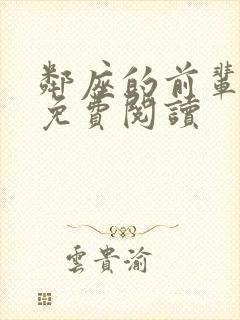 鄰座的前輩
免費閱讀
雲貴渝